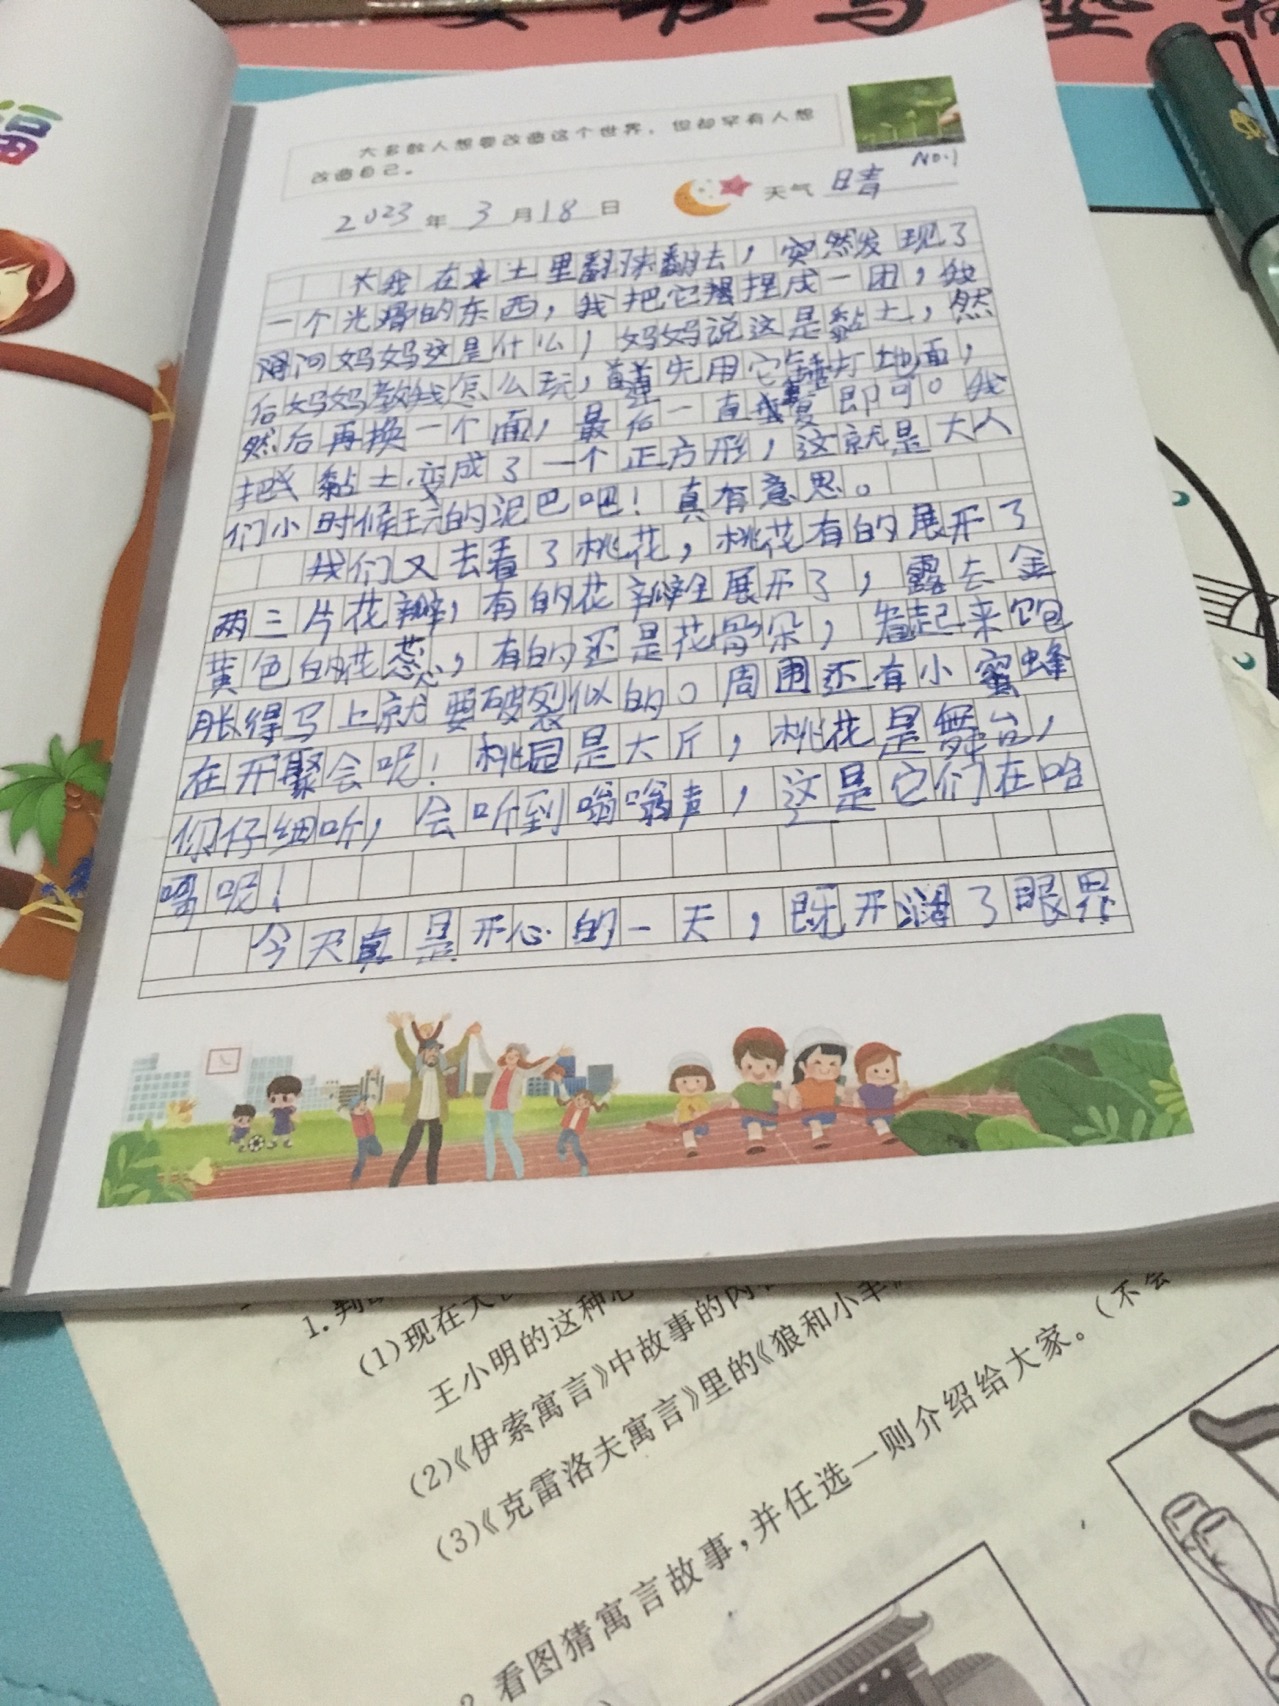 福
大多数人想要改造这个世界，但却罕有人想
改造自己。
No.1
2023年3月18日 天气 晴
我在土里翻来翻去，突然发现了
一个光滑的东西，我把它捏成一团，我
问妈妈这是什么，妈妈说这是黏土，然
后妈妈教我怎么玩，首先用它锤打地面，
然后再换一个面，最后一直重复即可。我
把黏土变成了一个正方形，这就是大人
们小时候玩的泥巴吧！真有意思。
我们又去看了桃花，桃花有的展开了
两三片花瓣，有的花瓣全展开了，露去金
黄色的花蕊，有的还是花骨朵，看起来饱
胀得马上就要破裂似的。周围还有小蜜蜂
在开聚会呢！桃园是大厅，桃花是舞台，
你仔细听，会听到嗡嗡声，这是它们在唱
呢！
今天真是开心的一天，既开阔了眼界
1.判
(1)现在天
王小明的这种
(2)《伊索寓言》中故事的内
(3)《克雷洛夫寓言》里的《狼和小羊》
2.看图猜寓言故事，并任选一则介绍给大家。(不会